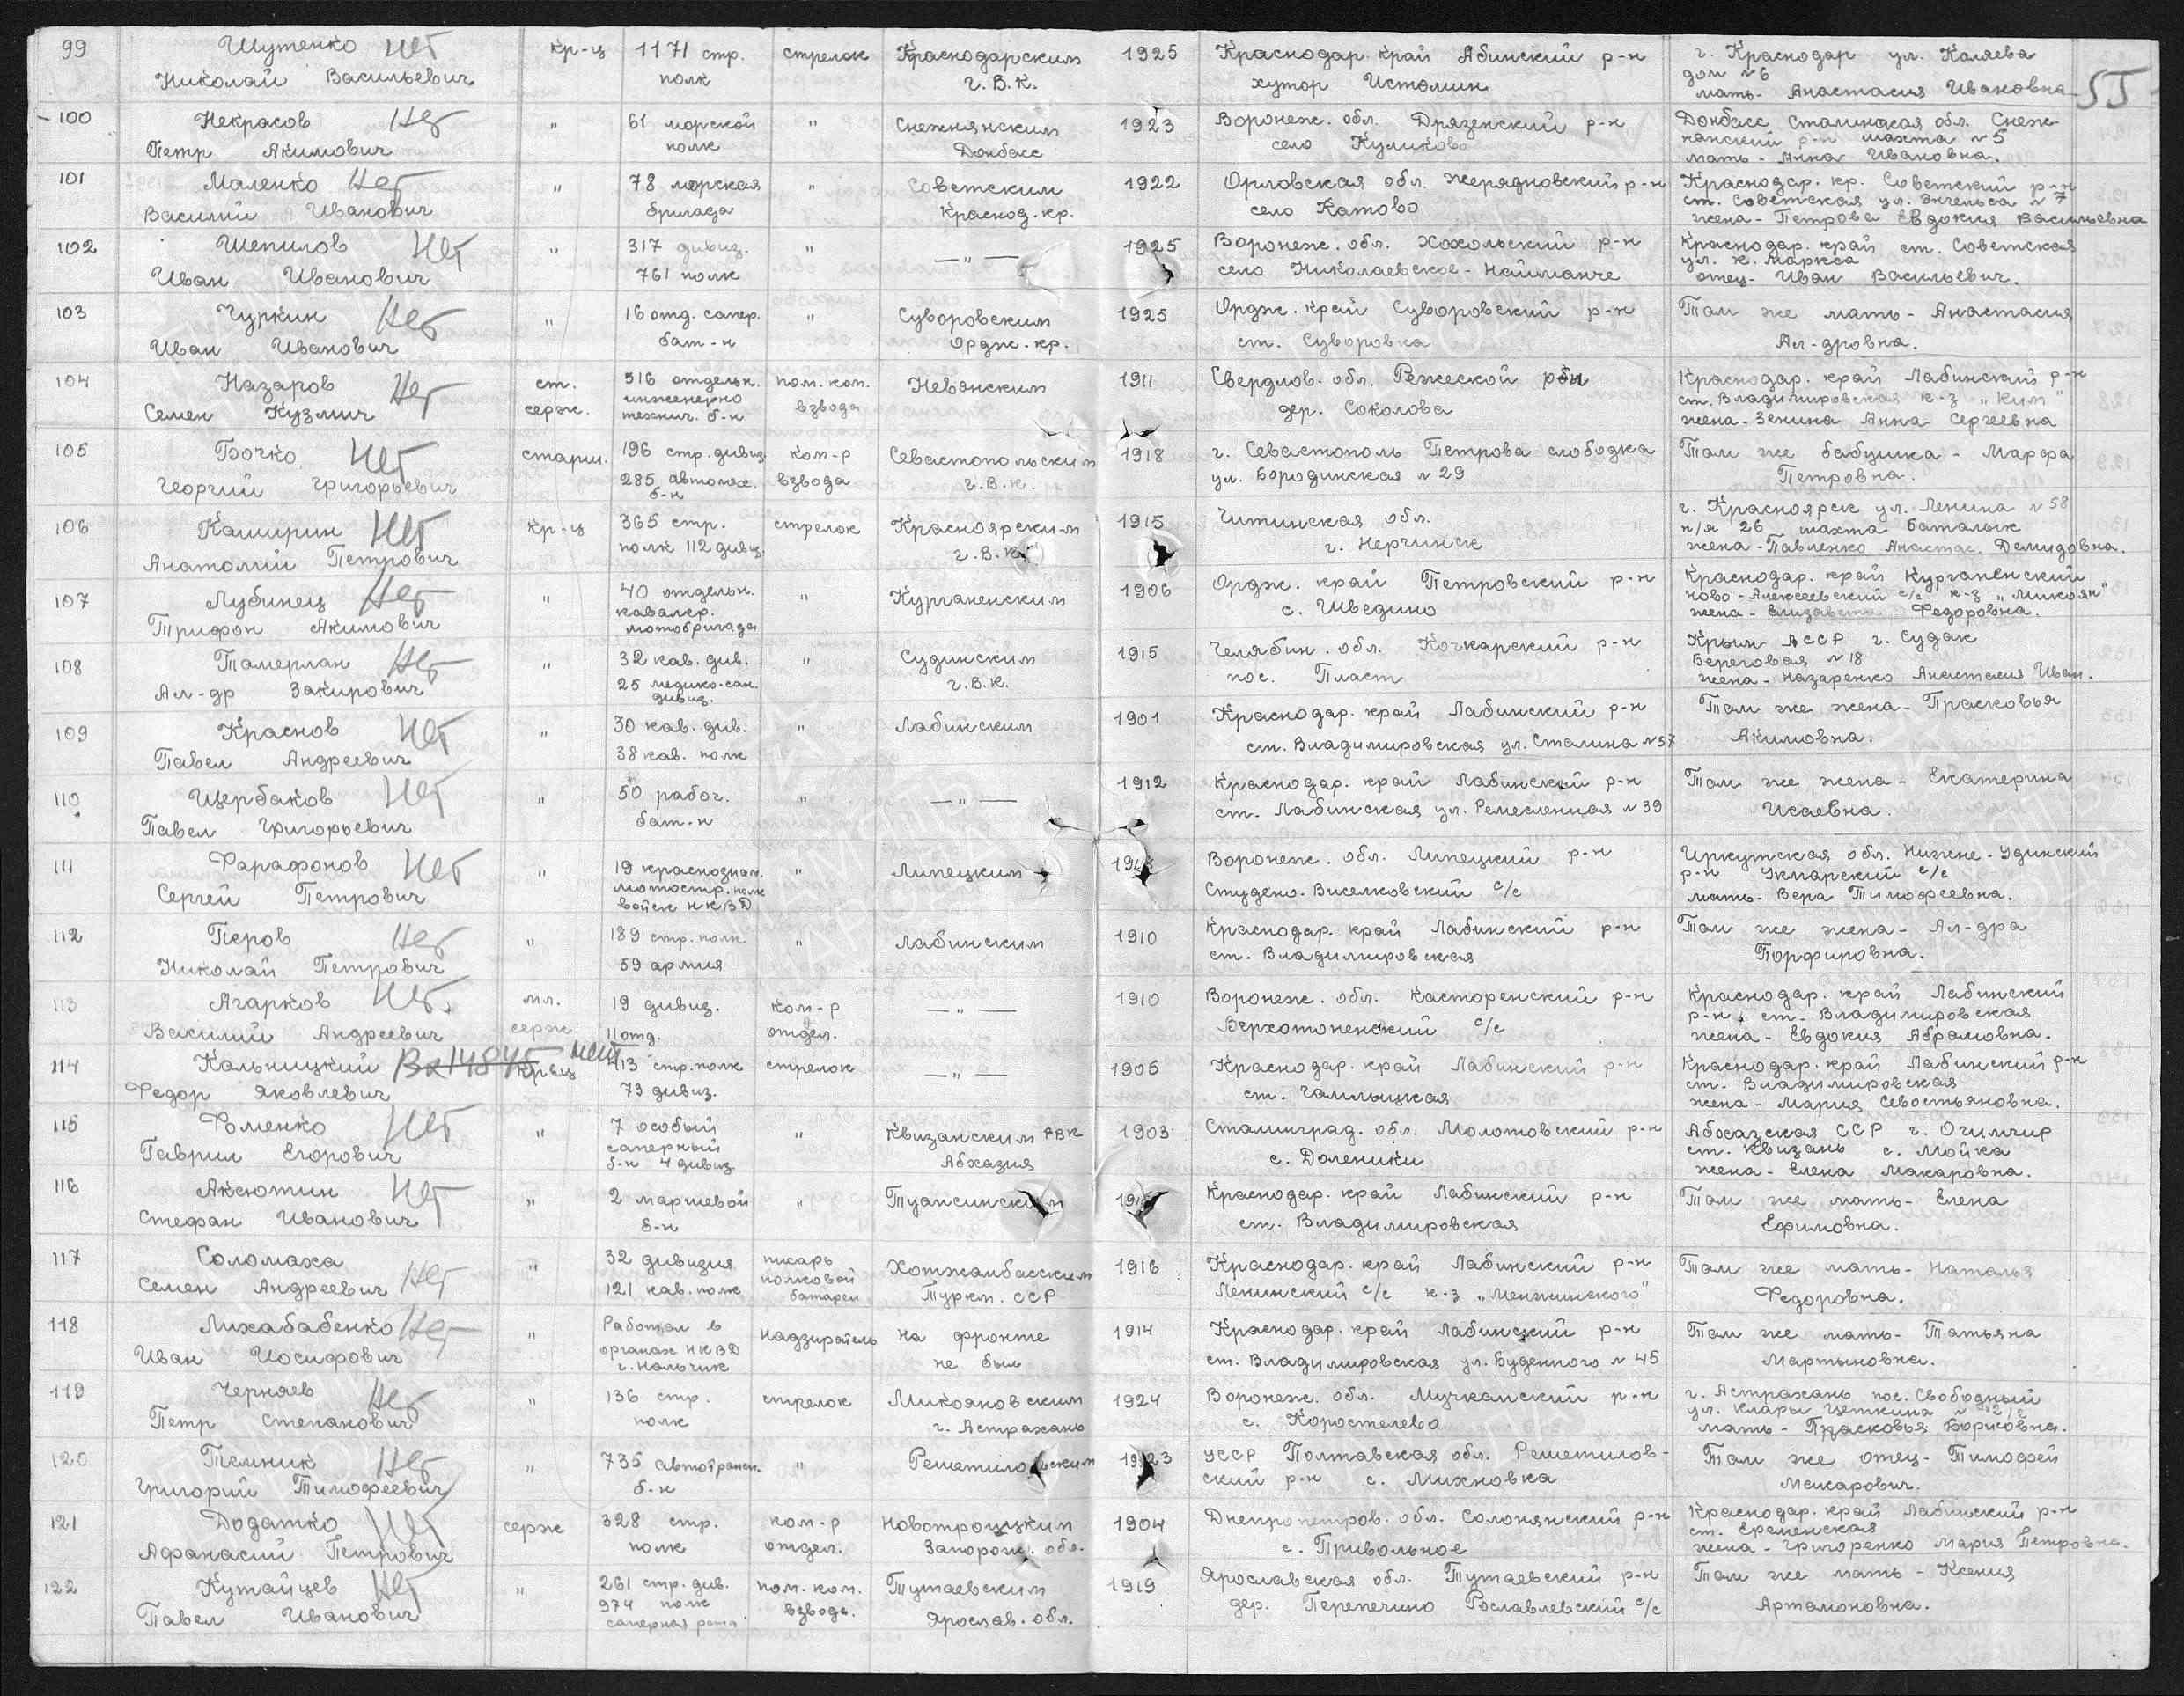 55
99 Шутенко Нет кр-ц 1171 стр. стрелок Краснодарским 1925 Краснодар. край Абинский р-н г. Краснодар ул. Каляева
Николай Васильевич полк г.В.К. хутор Истомин дом №6
мать- Анастасия Ивановна
100 Некрасов Нет " 61 морской " Снежнянским 1923 Воронеж. обл. Дрязенский р-н Донбасс Сталинская обл. Снеж-
Петр Акимович полк Донбасс село Куликово нянский р-н шахта №5
мать - Анна Ивановна.
101 Маленко Нет " 78 морская " Советским 1922 Орловская обл. Жерядновский р-н Краснодар. кр. Советский р-н
Василий Иванович бригада Краснод. кр. село Катово ст. Советская ул. Энгельса №7
жена - Петрова Евдокия Васильевна
102 Шепилов Нет " 317 дивиз. " — " — 1925 Воронеж. обл. Хохольский р-н Краснодар. край ст. Советская
Иван Иванович 761 полк село Николаевское - ул. К. Маркса
отец- Иван Васильевич.
103 Чуркин Нет " 16 отд. сапер. " Суворовским 1925 Ордж. край Суворовский р-н Там же мать - Анастасия
Иван Иванович бат-н Ордж. кр. ст. Суворовка Ал-дровна.
104 Назаров Нет ст. 516 отдельн. пом. ком. Невонским 1911 Свердлов. обл. Режеской р-н Краснодар. край Лабинский р-н
Семен Кузмич серж. инженерно взвода дер. Соколова ст. Владимировская к-з „Ким"
технич. б-н жена - Зенина Анна Сергеевна
105 Бочко Нет старш. 196 стр. дивиз. ком-р Севастопольским 1918 г. Севастополь Петрова слободка Там же бабушка - Марфа
Георгий Григорьевич 285 автомех. взвода г.В.К. ул. Бородинская №29 Петровна.
б-н
106 Каширин Нет кр-ц 365 стр. стрелок Красноярским 1915 Читинская обл. г. Красноярск ул. Ленина №58
Анатолий Петрович полк 112 дивиз. г.В.К. г. Нерчинск п/я 26 шахта Баталык
жена - Павленко Анастас. Демидовна.
107 Лубинец Нет " 40 отдельн. " Курганенским 1906 Ордж. край Петровский р-н Краснодар. край Курганенский
Трифон Акимович кавалер. с. Шведино ново-Алексеевский с/с к-з „Микоян"
мотобригада жена - Елизавета Федоровна.
108 Тамерлан Нет " 32 кав. див. " Судинским 1915 Челябин. обл. Кочкарский р-н Крым АССР г. Судак
Ал-др Закирович 25 медико-сан. г.В.К. пос. Пласт Береговая №18
дивиз. жена - Назаренко Анастасия Иван.
109 Краснов Нет " 30 кав. див. " Лабинским 1901 Краснодар. край Лабинский р-н Там же жена - Прасковья
Павел Андреевич 38 кав. полк ст. Владимировская ул. Сталина №57 Акимовна.
110 Щербаков Нет " 50 рабоч. " — " — 1912 Краснодар. край Лабинский р-н Там же жена - Екатерина
Павел Григорьевич бат-н ст. Лабинская ул. Ремесленная №39 Исаевна.
111 Фарафонов Нет " 19 краснознам. " Липецким Воронеж. обл. Липецкий р-н Иркутская обл. Нижне-Удинский
Сергей Петрович мотостр. полк Студено-Виселковский с/с р-н Укмарский с/с
войск НКВД мать- Вера Тимофеевна.
112 Перов Нет " 189 стр. полк " Лабинским 1910 Краснодар. край Лабинский р-н Там же жена - Ал-дра
Николай Петрович 59 армия ст. Владимировская Порфировна.
113 Агарков Нет. мл. 19 дивиз. ком-р — " — 1910 Воронеж. обл. Касторенский р-н Краснодар. край Лабинский
Василий Андреевич серж. 11 отд. отдел. Верхотоненский с/с р-н, ст. Владимировская
жена - Евдокия Абрамовна.
114 Кальницкий Вх14845 нет кр-ц 413 стр. полк стрелок — " — 1905 Краснодар. край Лабинский р-н Краснодар. край Лабинский р-н
Федор Яковлевич 73 дивиз. ст. Чамлыцкая ст. Владимировская
жена - Мария Севостьяновна.
115 Фоменко Нет " 7 особый " Квизанским РВК 1903 Сталинград. обл. Молотовский р-н Абхазская ССР г. Очимчир
Гаврил Егорович саперный Абхазия с. Доленики ст. Квизань с. Мойка
б-н 4 дивиз. жена - Елена Макаровна.
116 Аксютин Нет " 2 маршевой " Туапсинским Краснодар. край Лабинский р-н Там же мать - Елена
Стефан Иванович б-н ст. Владимировская Ефимовна.
117 Соломаха Нет " 32 дивизия писарь Хотжамбасским 1916 Краснодар. край Лабинский р-н Там же мать - Наталья
Семен Андреевич 121 кав. полк полковой Туркм. ССР Ленинский с/с к-з „Менжинского" Федоровна.
батареи
118 Лихабабенко Нет " Работал в надзиратель на фронте 1914 Краснодар. край Лабинский р-н Там же мать - Татьяна
Иван Иосифович органах НКВД не был ст. Владимировская ул. Буденного №45 Мартыновна.
г. Нальчик
119 Черняев Нет " 136 стр. стрелок Микояновским 1924 Воронеж. обл. Мучкамский р-н г. Астрахань пос. Свободный
Петр Степанович полк г. Астрахань с. Коростелево ул. Клары Цеткина
мать - Прасковья Борисовна.
120 Темник Нет " 735 автотрансп. " Решетиловским 1923 УССР Полтавская обл. Решетилов- Там же отец - Тимофей
Григорий Тимофеевич б-н ский р-н с. Михновка Макарович.
121 Додатко Нет серж 328 стр. ком-р Новотроицким 1904 Днепропетров. обл. Солонянский р-н Краснодар. край Лабинский р-н
Афанасий Петрович полк отдел. Запорож. обл. с. Привольное ст. Ереминская
жена - Григоренко Мария Петровна.
122 Кутайцев Нет " 261 стр. див. пом. ком. Тутаевским 1919 Ярославская обл. Тутаевский р-н Там же мать - Ксения
Павел Иванович 974 полк взвода. Ярослав. обл. дер. Перепечино Рославлевский с/с Артамоновна.
саперная рота